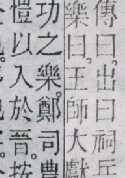 傳曰出曰祠兵
樂。曰。王師大獻
功之樂。鄭司農
愷以入於晉。按